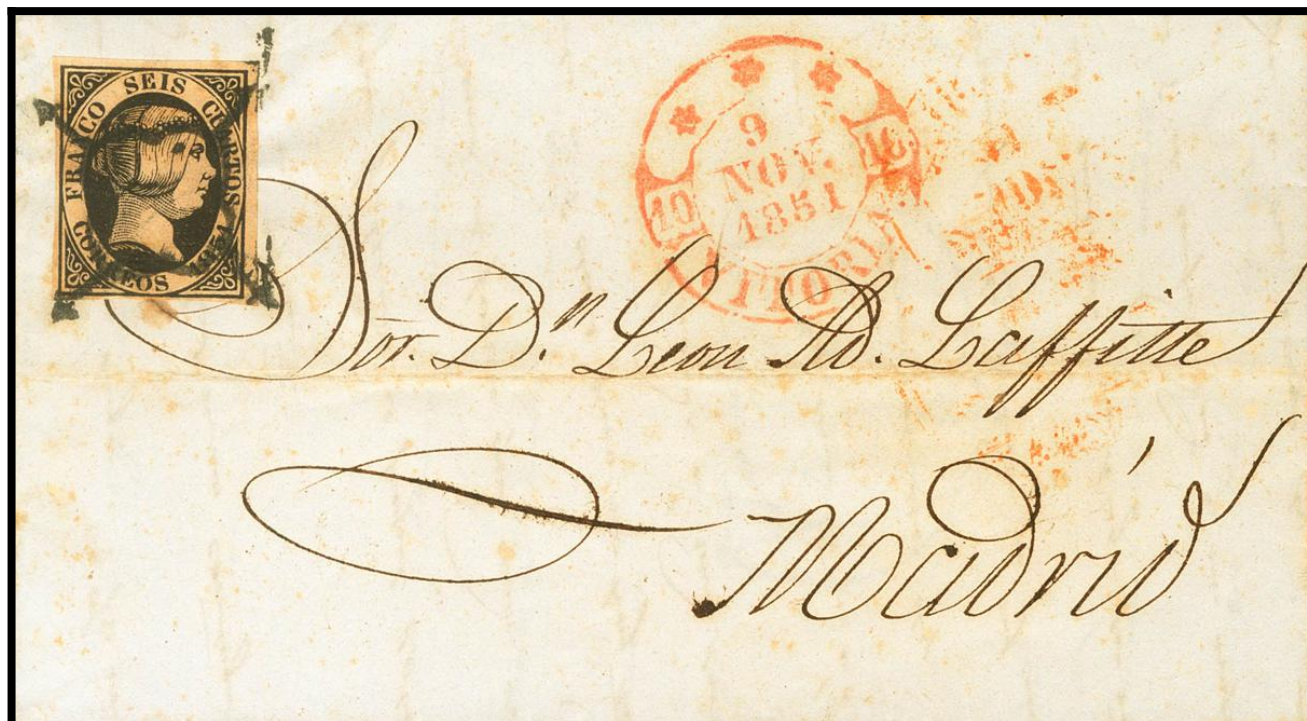 FRANCO SEIS CUARTOS
CORREOS 1851
9
NOV.
1851
10 10
VITORIA
Sor. D.ⁿ Leon Ad. Laffitte
Madrid